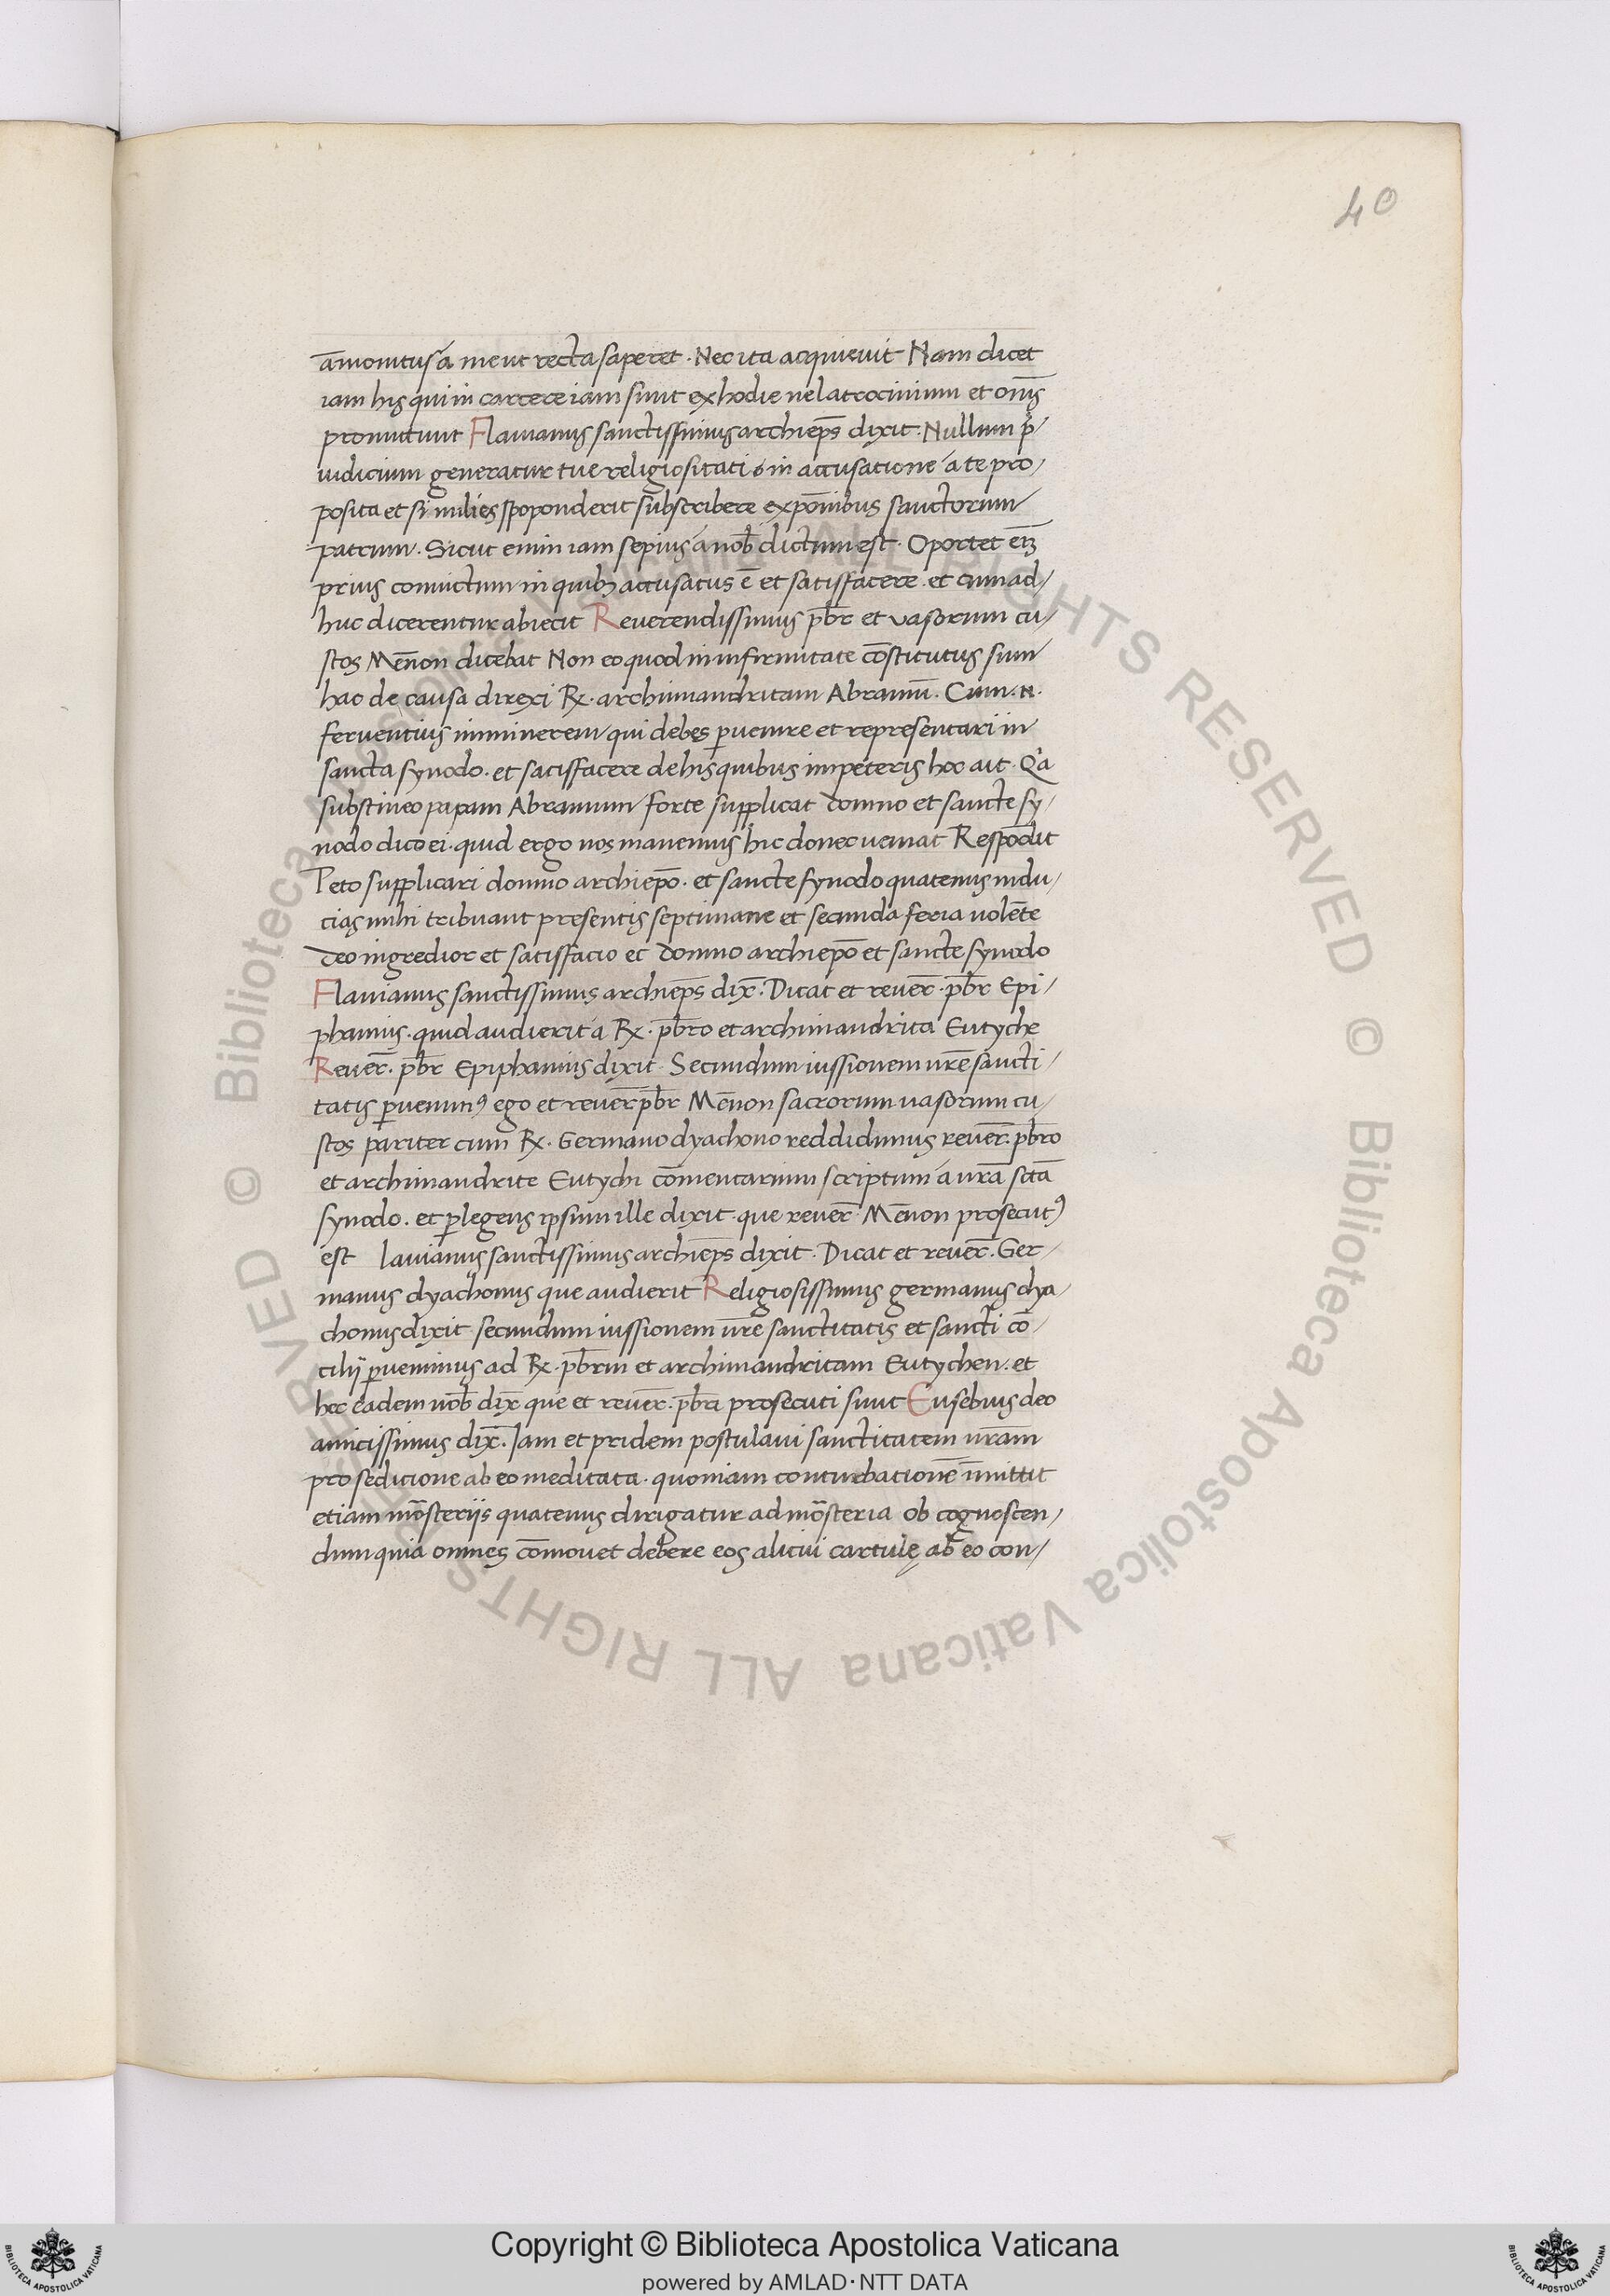 40
āmonitus á me ut recta saperet · Nec ita acquievit · Nam dicet
iam his qui in carcere iam sunt ex hodie vel latrocinium et om̄s
promittunt Flavianus sanctissimus archiep̄s dixit · Nullum p̄
iudicium generatur tue religiositati in accusatione á te pro/
posita et si milies spoponderit subscribere expōnibus sanctorum
patrum · Sicut enim iam sepius á nob̄ dictum est · Oportet eū
prius convictum in quibȝ accusatus ē et satisfacere · et cum ad/
huc dicerentur abiecit Reverendissimus pb̄r et vasorum cu/
stos Mēnon dicebat Non eo quod in infirmitate cōstitutus sum
hac de causa direxi Rx · archimandritam Abramū · Cum · n ·
ferventius imminerem qui debes pvenire et representari in
sancta synodo · et satisfacere de his quibus impeteris hoc ait · Qa
substineo papam Abramum forte supplicat domno et sancte sy/
nodo dico ei · quid ergo nos manemus hic donec veniat Respōdit
Peto supplicari domno archiepō · et sancte synodo quatenus indu/
cias mihi tribuant presentis septimane et secunda feria volēte
deo ingredior et satisfacio et domno archiepō et sancte synodo
Flavianus sanctissimus archiep̄s dix̄ · Dicat et revēr · pb̄r Epi/
phanius · quid audierit á Rx · pb̄ro et archimandrita Eutyche
Revēr · pb̄r Epiphanius dixit · Secundum iussionem vrē sancti/
tatis pvenimꝰ ego et revēr pb̄r Mēnon sacrorum vasorum cu/
stos pariter cum Rx · Germano dyachono reddidimus revēr · pb̄ro
et archimandrite Eutychi cōmentarium scriptum á vrā sctā
synodo · et plegens ipsum ille dixit · que revēr · Mēnon prosecutꝰ
est lavianus sanctissimus archiep̄s dixit · Dicat et revēr · Ger/
manus dyachonus que audierit Religiosissimus germanus dya/
chonus dixit · secundum iussionem vrē sanctitatis et sancti cō/
cilij pvenimus ad Rx · pb̄rm et archimandritam Eutychen · et
hec eadem nob̄ dix̄ que et revēr · pb̄ri prosecuti sunt Eusebius deo
amicissimus dix̄ · Iam et pridem postulavi sanctitatem vrām
pro sedicione ab eo meditata · quoniam conturbationē īmittit
etiam mōsteriis quatenus dirigatur ad mōsteria ob cognoscen/
dum quia omnes cōmovet debere eos alicui cartulę ab eo con/
Copyright © Biblioteca Apostolica Vaticana
powered by AMLAD·NTT DATA